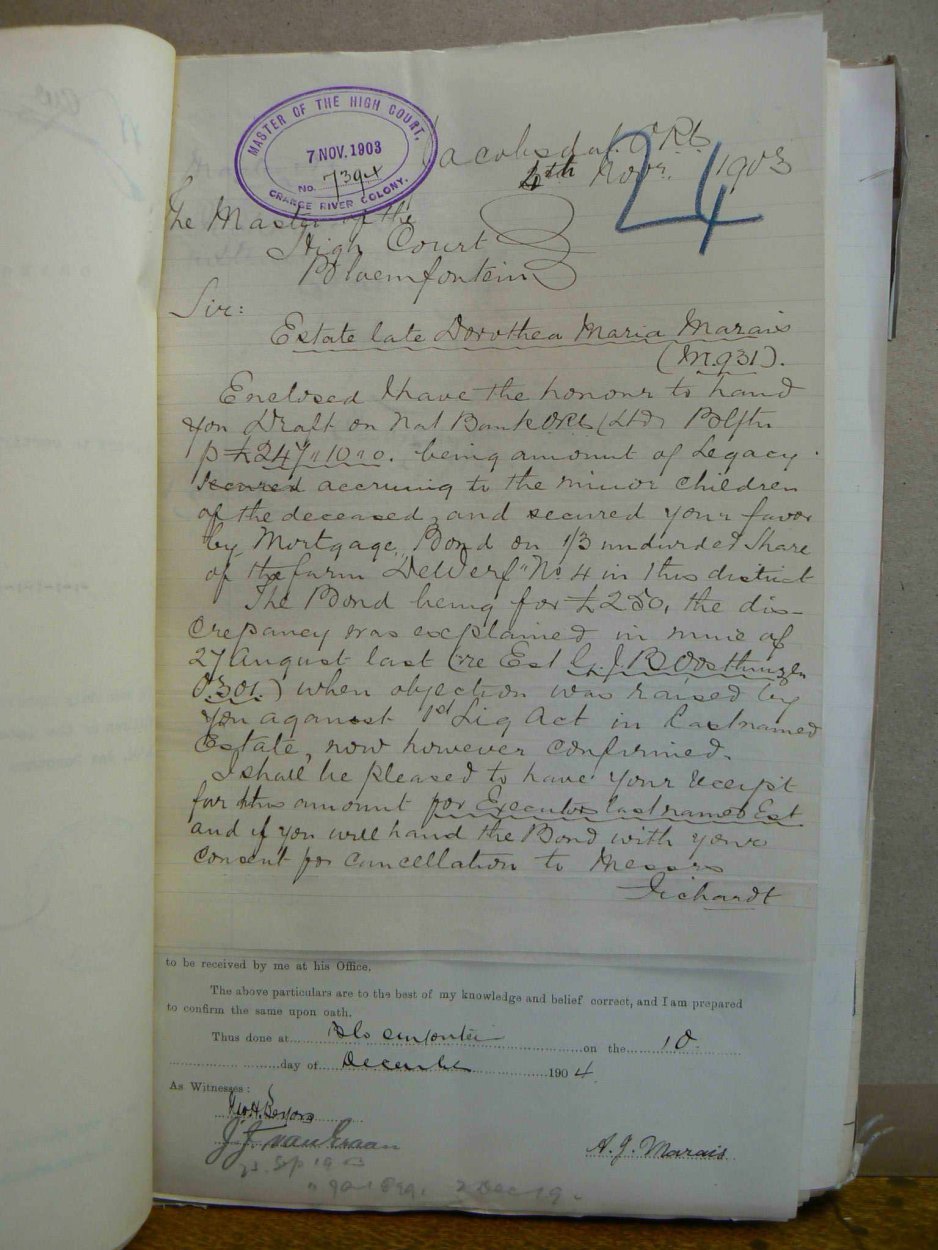 MASTER OF THE HIGH COURT,
7 NOV. 1903
No. 7394
ORANGE RIVER COLONY.
24
Jacobsdal. ORC
4th Novr. 1903
The Master of the
High Court
Bloemfontein
Sir:
Estate late Dorothea Maria Marais
(M.931).
Enclosed I have the honour to hand
you Draft on Nat Bank ORC (Ltd) Blftn
p £247"10"0. being amount of Legacy
secured accruing to the minor children
of the deceased, and secured your favor
by Mortgage Bond on 1/3 undivided Share
of the farm "DeWerf" No 4 in this district
The Bond being for £250, the dis-
crepancy was explained in mine of
27 August last (re Est G.J.B Oosthuizen
O.301.) when objection was raised by
you against 1st Liq Act in lastnamed
Estate, now however confirmed.
I shall be pleased to have your receipt
for this amount for Executor lastnamed Est
and if you will hand the Bond with your
consent for cancellation to Messrs
Fichardt
to be received by me at his Office.
The above particulars are to the best of my knowledge and belief correct, and I am prepared
to confirm the same upon oath.
Thus done at Bloemfontein on the 10
day of December 1904
As Witnesses:
J. J. van Graan
A. J. Marais
23. Sep 1903